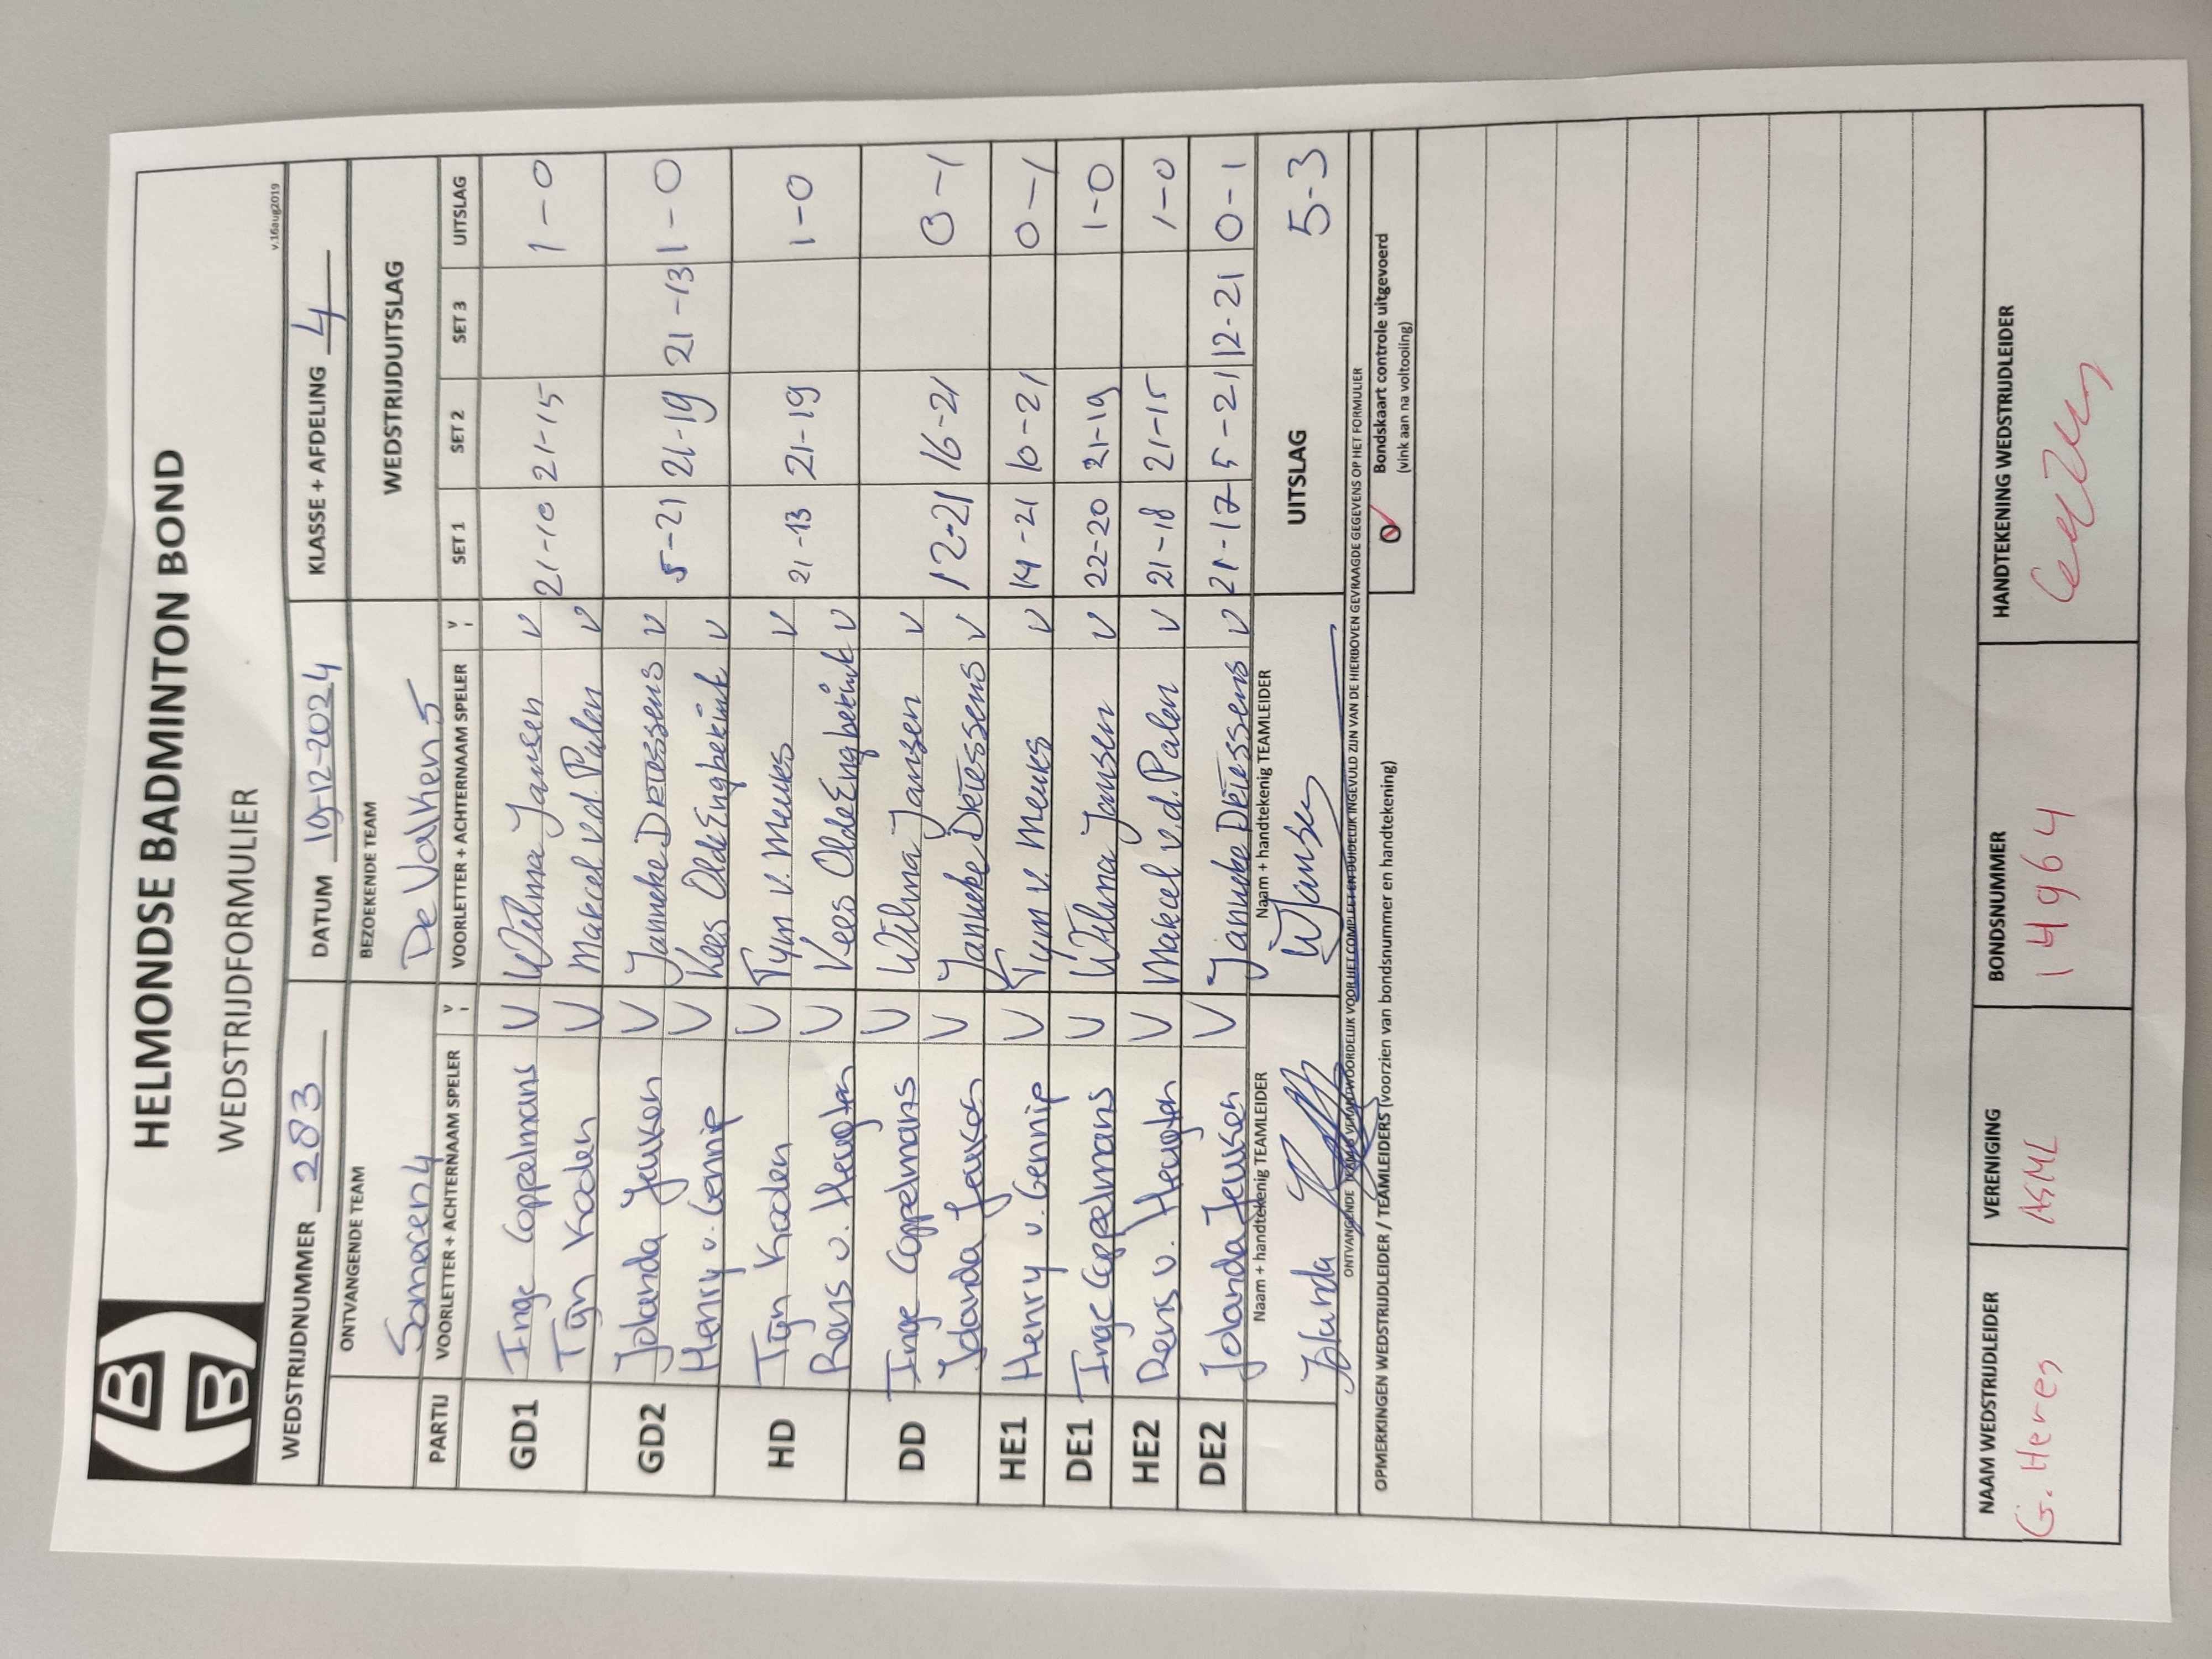 HELMONDSE BADMINTON BOND
WEDSTRIJDFORMULIER
v.16aug2019
WEDSTRIJDNUMMER 283 DATUM 19-12-2024 KLASSE + AFDELING 4
ONTVANGENDE TEAM BEZOEKENDE TEAM WEDSTRIJDUITSLAG
Someren 4 De Valken 5
PARTIJ VOORLETTER + ACHTERNAAM SPELER V VOORLETTER + ACHTERNAAM SPELER V SET 1 SET 2 SET 3 UITSLAG
GD1 Inge Coppelmans V Wilma Jansen V 21-10 21-15 1-0
Tijn Koolen V Marcel v.d. Palen V
GD2 Jolanda Jeuken V Janneke Driessens V 5-21 21-19 21-13 1-0
Henry v. Gennip V Kees Olde Engberink V
HD Tijn Koolen V Tym v. Meurs V 21-13 21-19 1-0
Rens v. Heugten V Kees Olde Engberink V
DD Inge Coppelmans V Wilma Jansen V 12-21 16-21 0-1
Jolanda Jeuken V Janneke Driessens V
HE1 Henry v. Gennip V Tym v. Meurs V 14-21 10-21 0-1
DE1 Inge Coppelmans V Wilma Jansen V 22-20 21-19 1-0
HE2 Rens v. Heugten V Marcel v.d. Palen V 21-18 21-15 1-0
DE2 Jolanda Jeuken V Janneke Driessens V 21-17 5-21 12-21 0-1
Naam + handtekenig TEAMLEIDER Naam + handtekenig TEAMLEIDER UITSLAG 5-3
Jolanda WJansen
ONTVANGENDE TEAM IS VERANDWOORDELIJK VOOR HET COMPLEET EN DUIDELIJK INGEVULD ZIJN VAN DE HIERBOVEN GEVRAAGDE GEGEVENS OP HET FORMULIER
OPMERKINGEN WEDSTRIJDLEIDER / TEAMLEIDERS (voorzien van bondsnummer en handtekening)
Bondskaart controle uitgevoerd
(vink aan na voltooling)
NAAM WEDSTRIJDLEIDER VERENIGING BONDSNUMMER HANDTEKENING WEDSTRIJDLEIDER
G. Heres ASML 14964